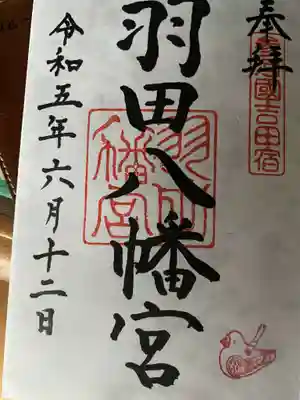 奉拝
三河國吉田宿
羽田八幡宮
羽田八幡宮
令和五年六月十二日